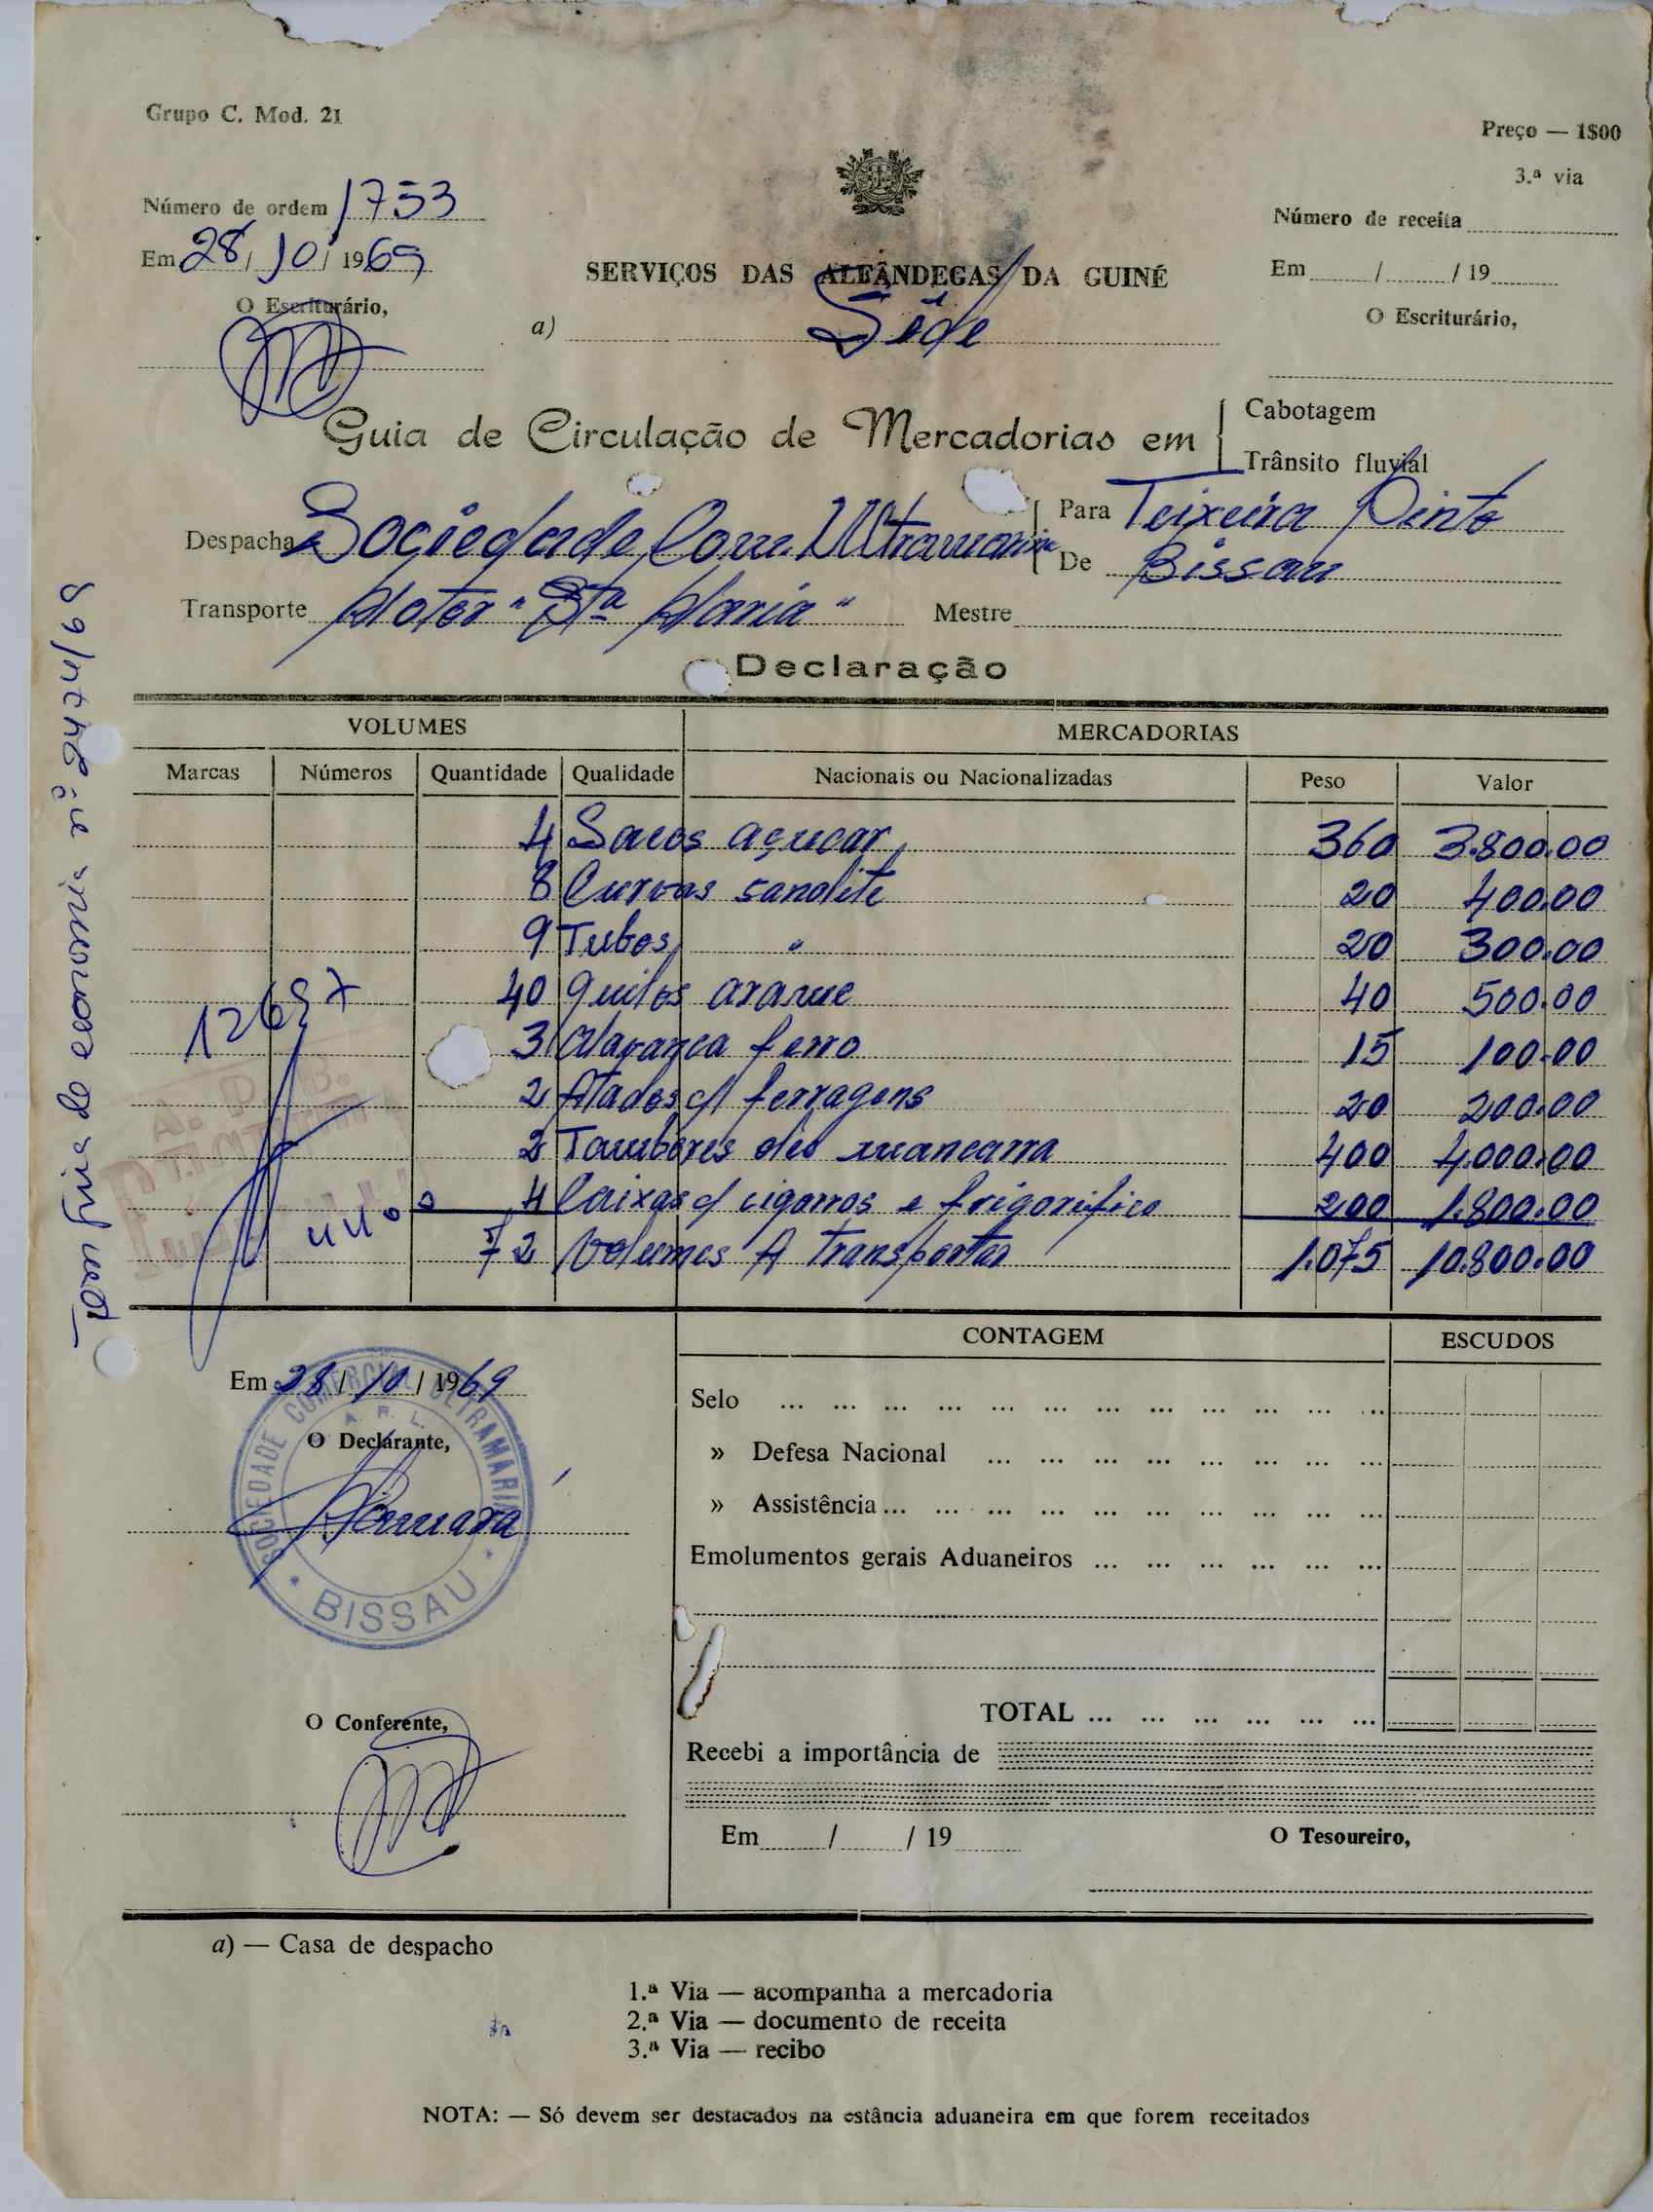 Grupo C. Mod. 21
Preço — 1$00
3.ª via
Número de ordem 1753
Em 28/10/1969
O Escriturário,
SERVIÇOS DAS ALFÂNDEGAS DA GUINÉ
a) Séde
Número de receita
Em / / 19
O Escriturário,
Guia de Circulação de Mercadorias em
Cabotagem
Trânsito fluvial
Despacha Sociedade Com. Ultramarina
Para Teixeira Pinto
De Bissau
Transporte Motor "Sta Maria"
Mestre
Declaração
VOLUMES MERCADORIAS
Marcas Números Quantidade Qualidade Nacionais ou Nacionalizadas Peso Valor
4 Sacos açucar 360 3.800.00
8 Curvas sanolite 20 400.00
9 Tubos " 20 300.00
40 quilos arame 40 500.00
3 ferro 15 100.00
2 Atados c/ ferragens 20 200.00
2 Tambores oleo mancarra 400 4.000.00
4 Caixas c/ cigarros e frigorifico 200 1.800.00
72 Volumes A transportar 1.075 10.800.00
12697
Em 28/10/1969
O Declarante,
SOCIEDADE COMERCIAL ULTRAMARINA
A. R. L.
BISSAU
O Conferente,
CONTAGEM ESCUDOS
Selo ... ... ... ... ... ... ... ... ... ... ... ...
» Defesa Nacional ... ... ... ... ... ... ... ...
» Assistência ... ... ... ... ... ... ... ... ... ...
Emolumentos gerais Aduaneiros ... ... ... ... ... ...
TOTAL ... ... ... ... ... ...
Recebi a importância de
Em / / 19
O Tesoureiro,
a) — Casa de despacho
1.ª Via — acompanha a mercadoria
2.ª Via — documento de receita
3.ª Via — recibo
NOTA: — Só devem ser destacados na estância aduaneira em que forem receitados